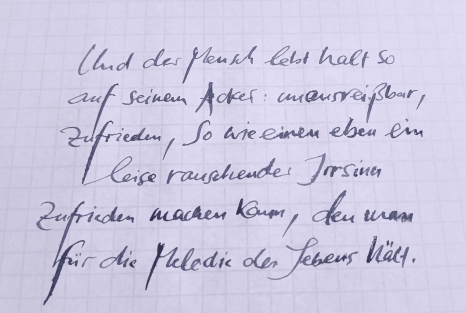 Und der Mensch lebt halt so
auf seinem Acker: unausreißbar,
zufrieden, so wie einen eben ein
leise rauschender Irrsinn
zufrieden machen kann, den man
für die Melodie des Lebens hält.